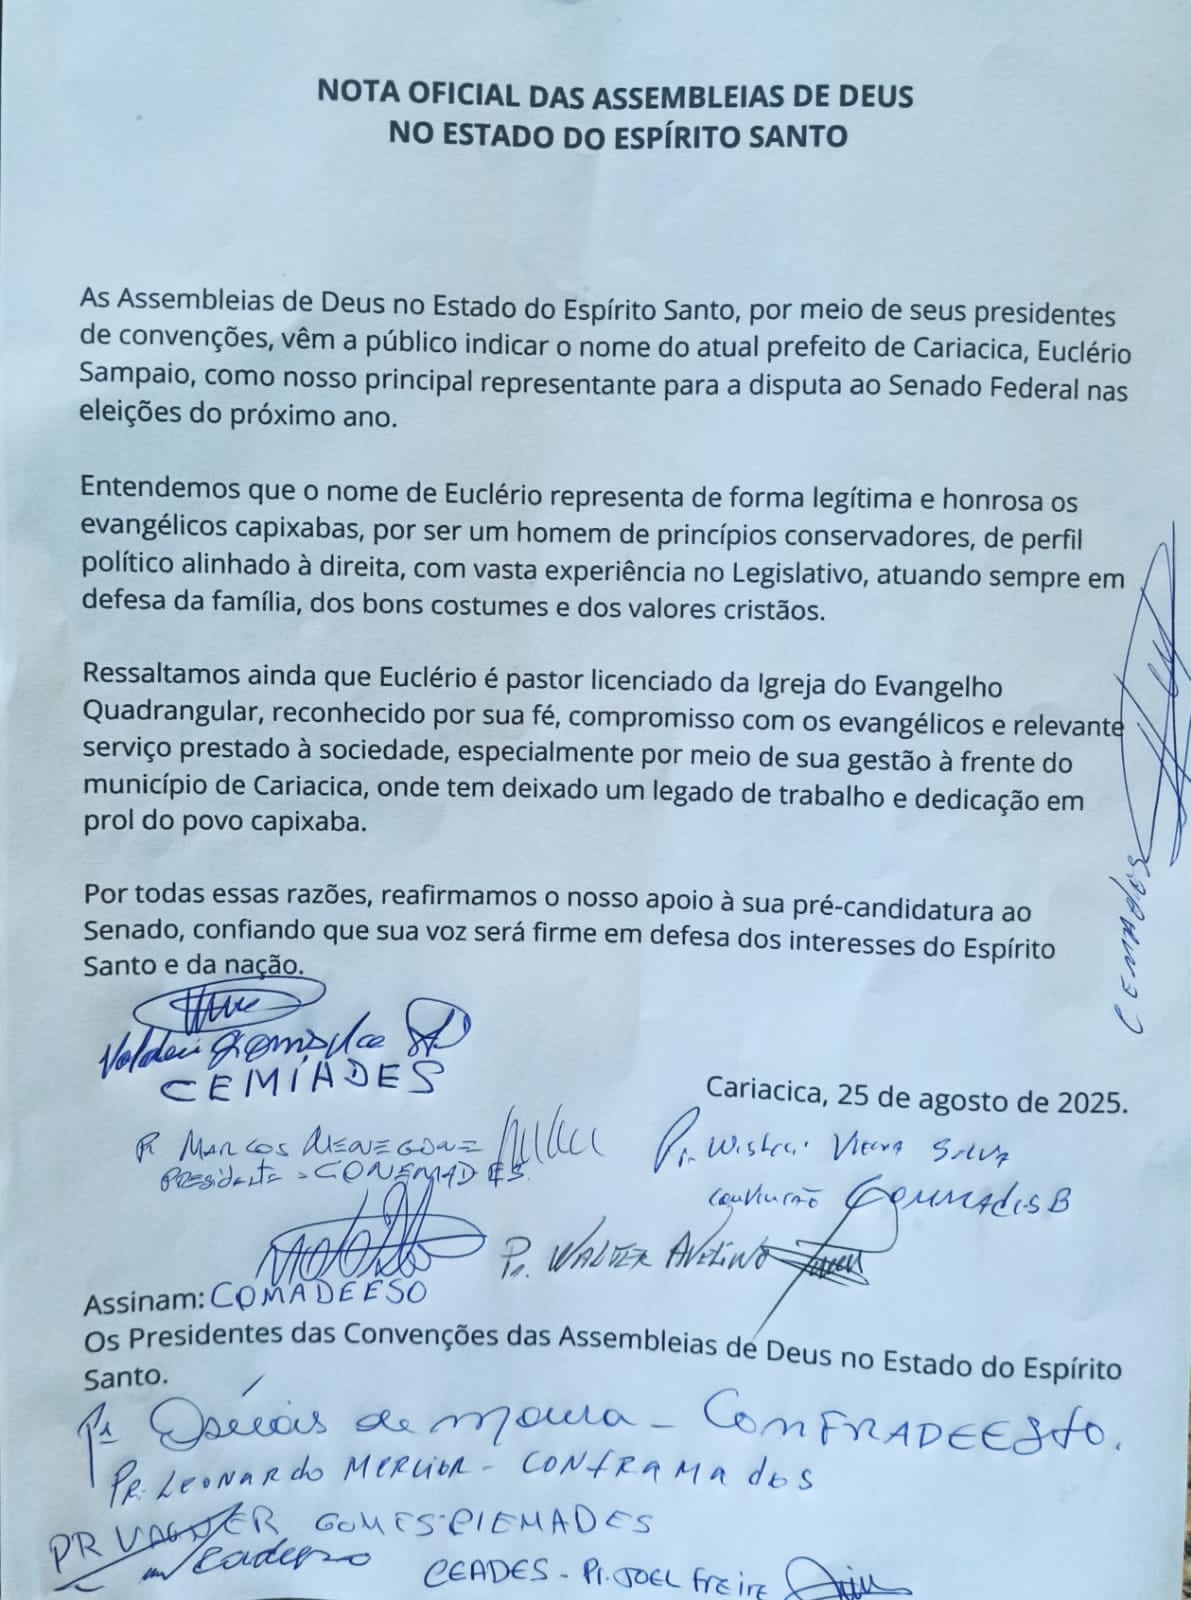 NOTA OFICIAL DAS ASSEMBLEIAS DE DEUS
NO ESTADO DO ESPÍRITO SANTO
As Assembleias de Deus no Estado do Espírito Santo, por meio de seus presidentes
de convenções, vêm a público indicar o nome do atual prefeito de Cariacica, Euclério
Sampaio, como nosso principal representante para a disputa ao Senado Federal nas
eleições do próximo ano.
Entendemos que o nome de Euclério representa de forma legítima e honrosa os
evangélicos capixabas, por ser um homem de princípios conservadores, de perfil
político alinhado à direita, com vasta experiência no Legislativo, atuando sempre em
defesa da família, dos bons costumes e dos valores cristãos.
Ressaltamos ainda que Euclério é pastor licenciado da Igreja do Evangelho
Quadrangular, reconhecido por sua fé, compromisso com os evangélicos e relevante
serviço prestado à sociedade, especialmente por meio de sua gestão à frente do
município de Cariacica, onde tem deixado um legado de trabalho e dedicação em
prol do povo capixaba.
Por todas essas razões, reafirmamos o nosso apoio à sua pré-candidatura ao
Senado, confiando que sua voz será firme em defesa dos interesses do Espírito
Santo e da nação.
CEMADOS
CEMIADES
Cariacica, 25 de agosto de 2025.
Pr MARCOS
Presidente - CONEMADES
Pr. Vieira Silva
convenção
Pr. WALTER AVELINO
Assinam: COMADEESO
Os Presidentes das Convenções das Assembleias de Deus no Estado do Espírito
Santo.
Pr Oséias de Moura - CONFRADEESTO.
PR. LEONARDO - CONFRAMADOS
PR VAGNER GOMES
CEADES - Pr. JOEL FREIRE